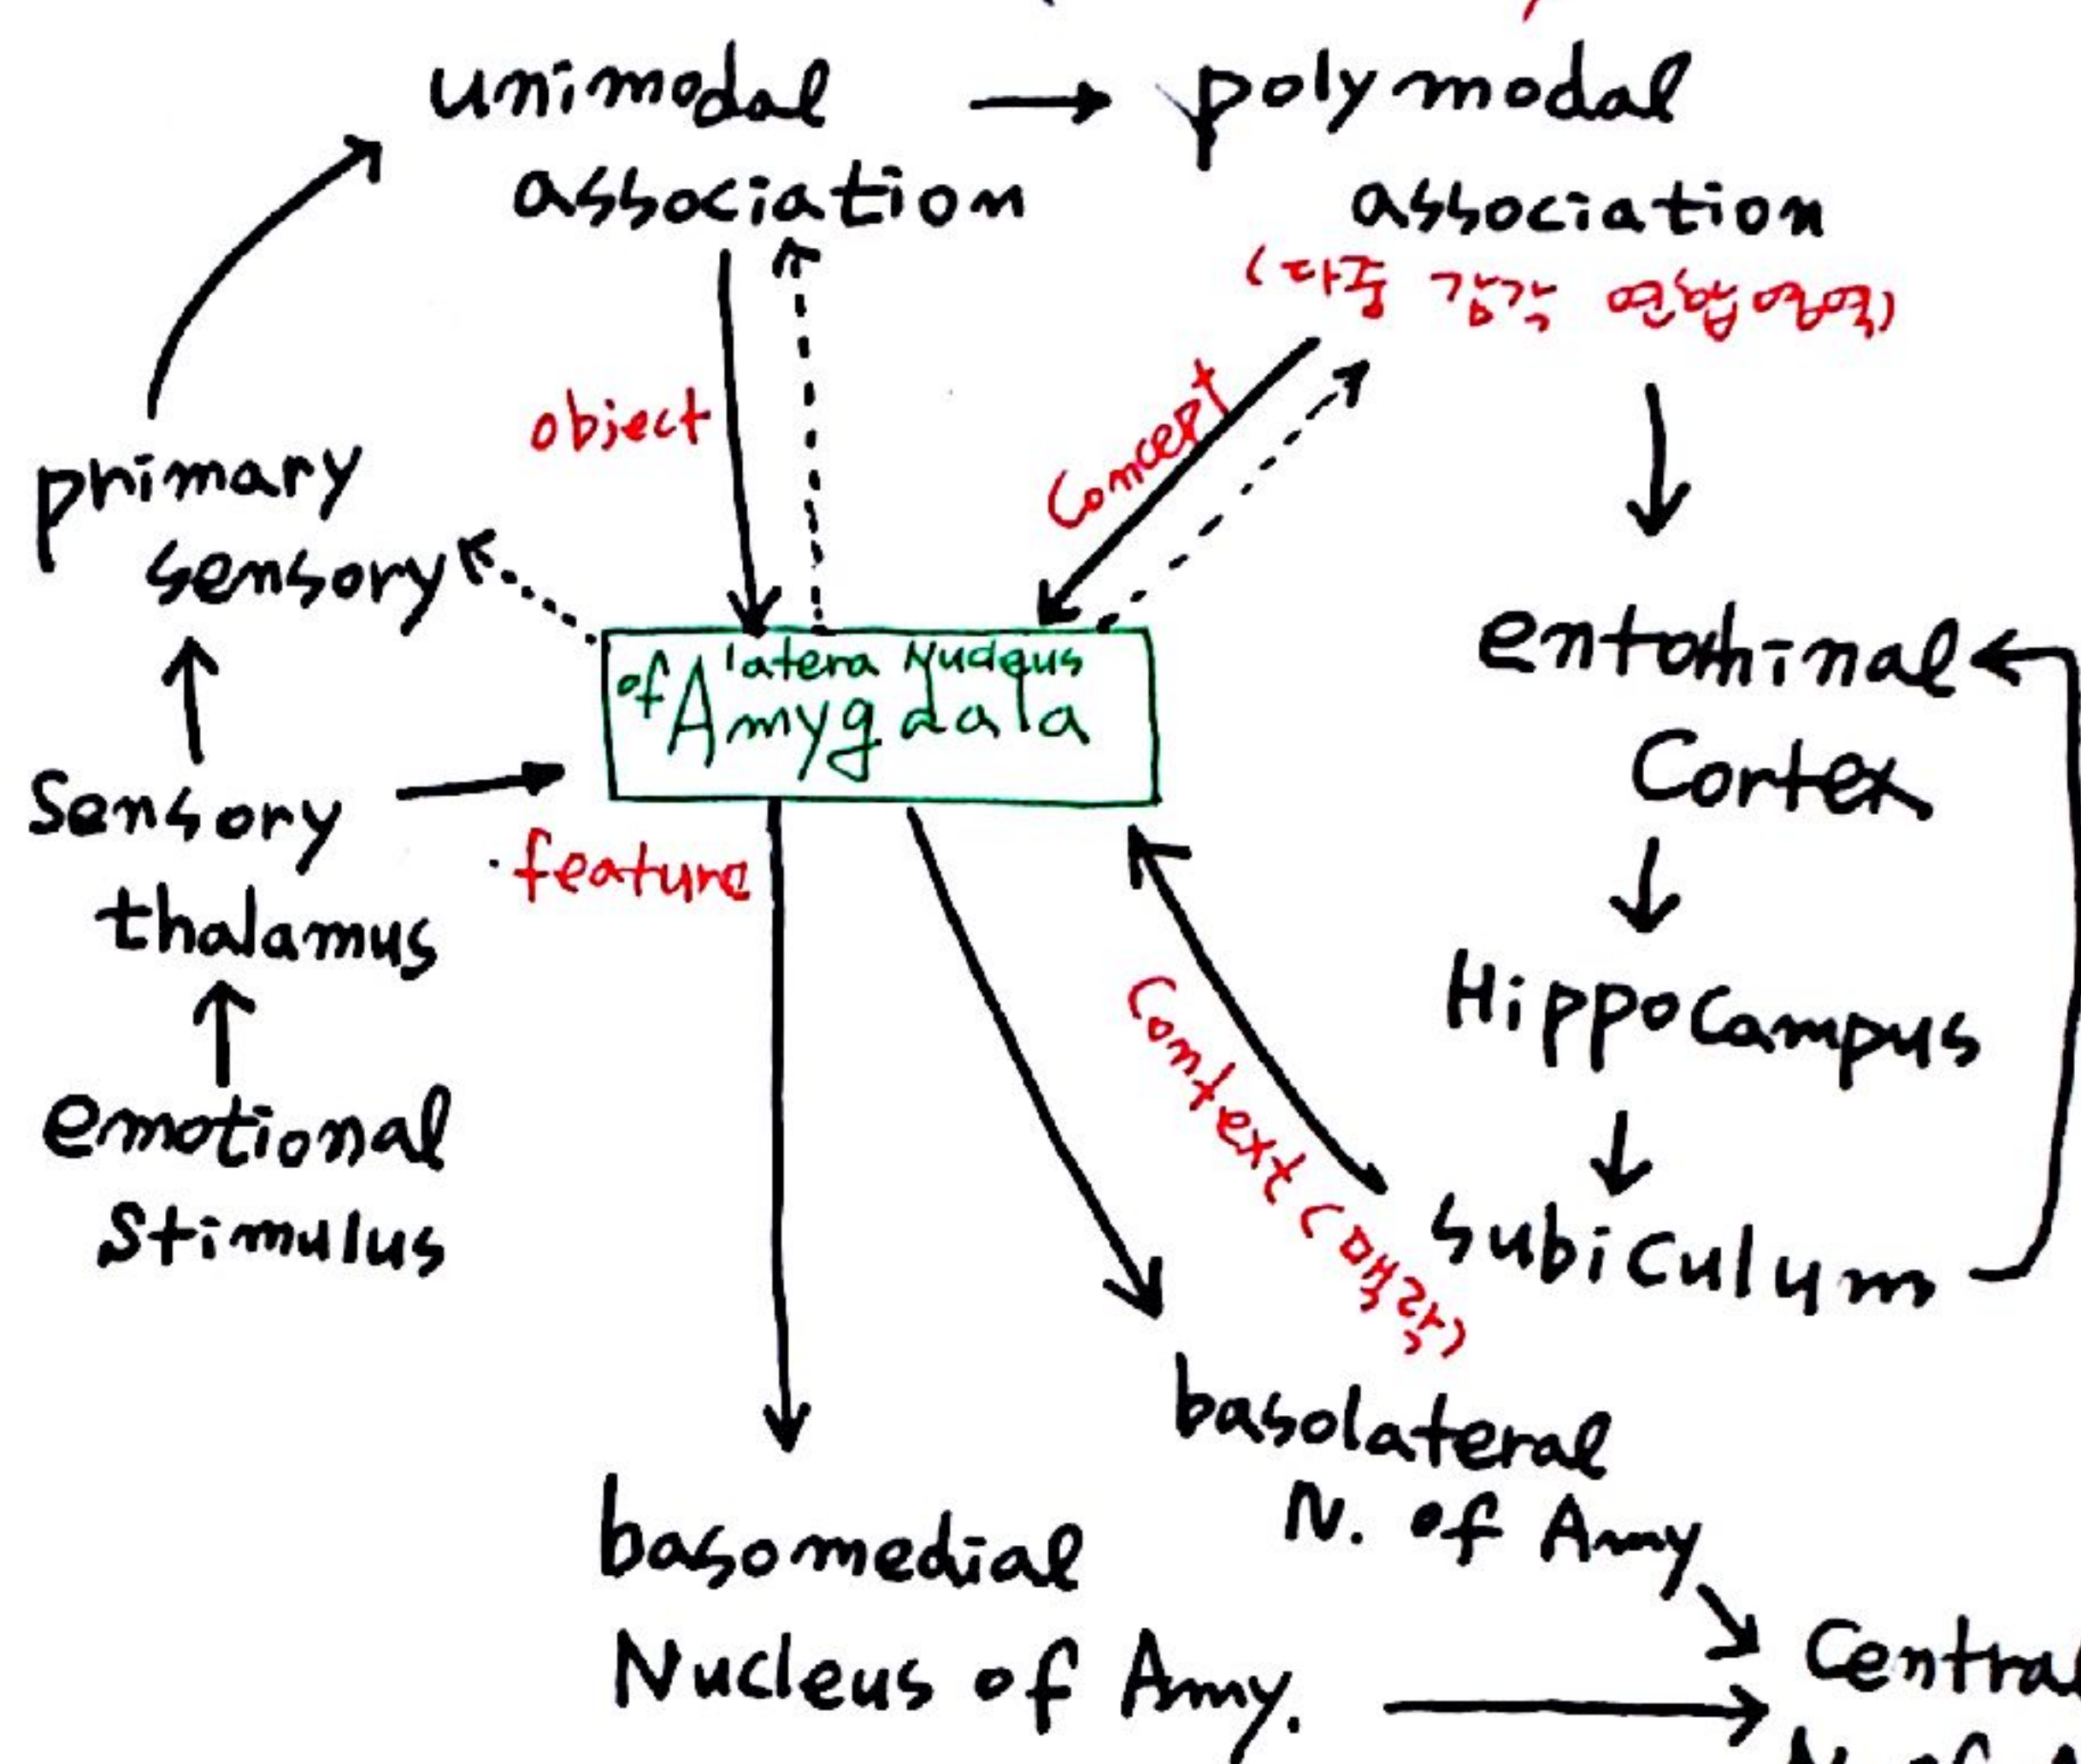 unimodal
association
polymodal
association
(다중 감각 연합영역)
object
Concept
primary
sensory
latera Nucleus
of Amygdala
entorhinal
Cortex
Sensory
thalamus
feature
Hippocampus
emotional
Stimulus
Context (맥락)
subiculum
basolateral
N. of Amy
basomedial
Nucleus of Amy.
Central